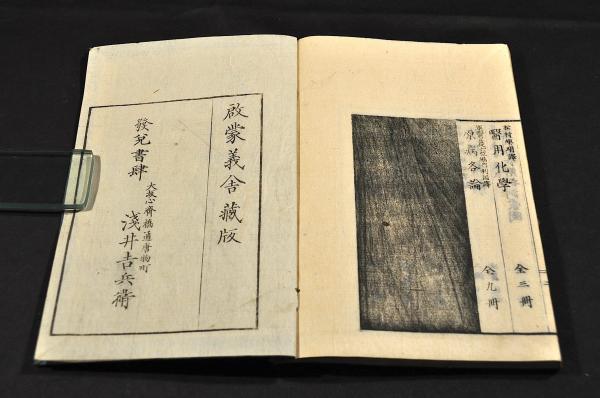 醫用化學
全三冊
原病各論
全九冊
啟蒙義舍藏版
發兌書肆
大坂心齋橋通唐物町
淺井吉兵衛